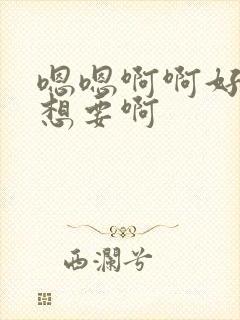 嗯嗯啊啊好
想要啊
西瀾兮